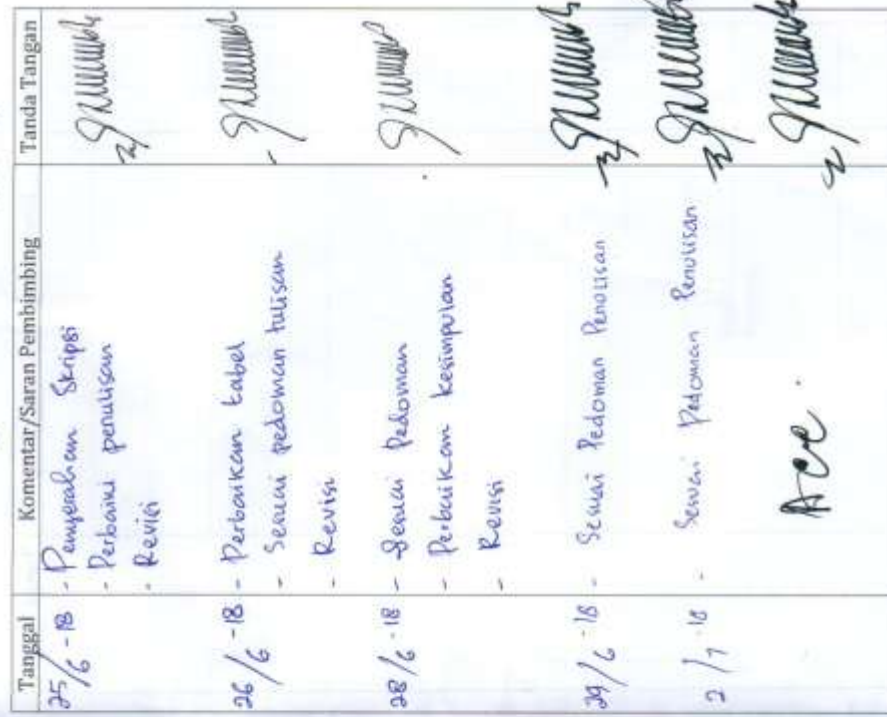 Tanggal Komentar/Saran Pembimbing Tanda Tangan
25/6 -18 - Penyerahan Skripsi
- Perbaiki penulisan
- Revisi
26/6 -18 - Perbaikan tabel
- Sesuai pedoman tulisan
- Revisi
28/6 -18 - Sesuai Pedoman
- Perbaikan kesimpulan
- Revisi
29/6 -18 - Sesuai Pedoman Penulisan
2/7 -18 - Sesuai Pedoman Penulisan
Acc.